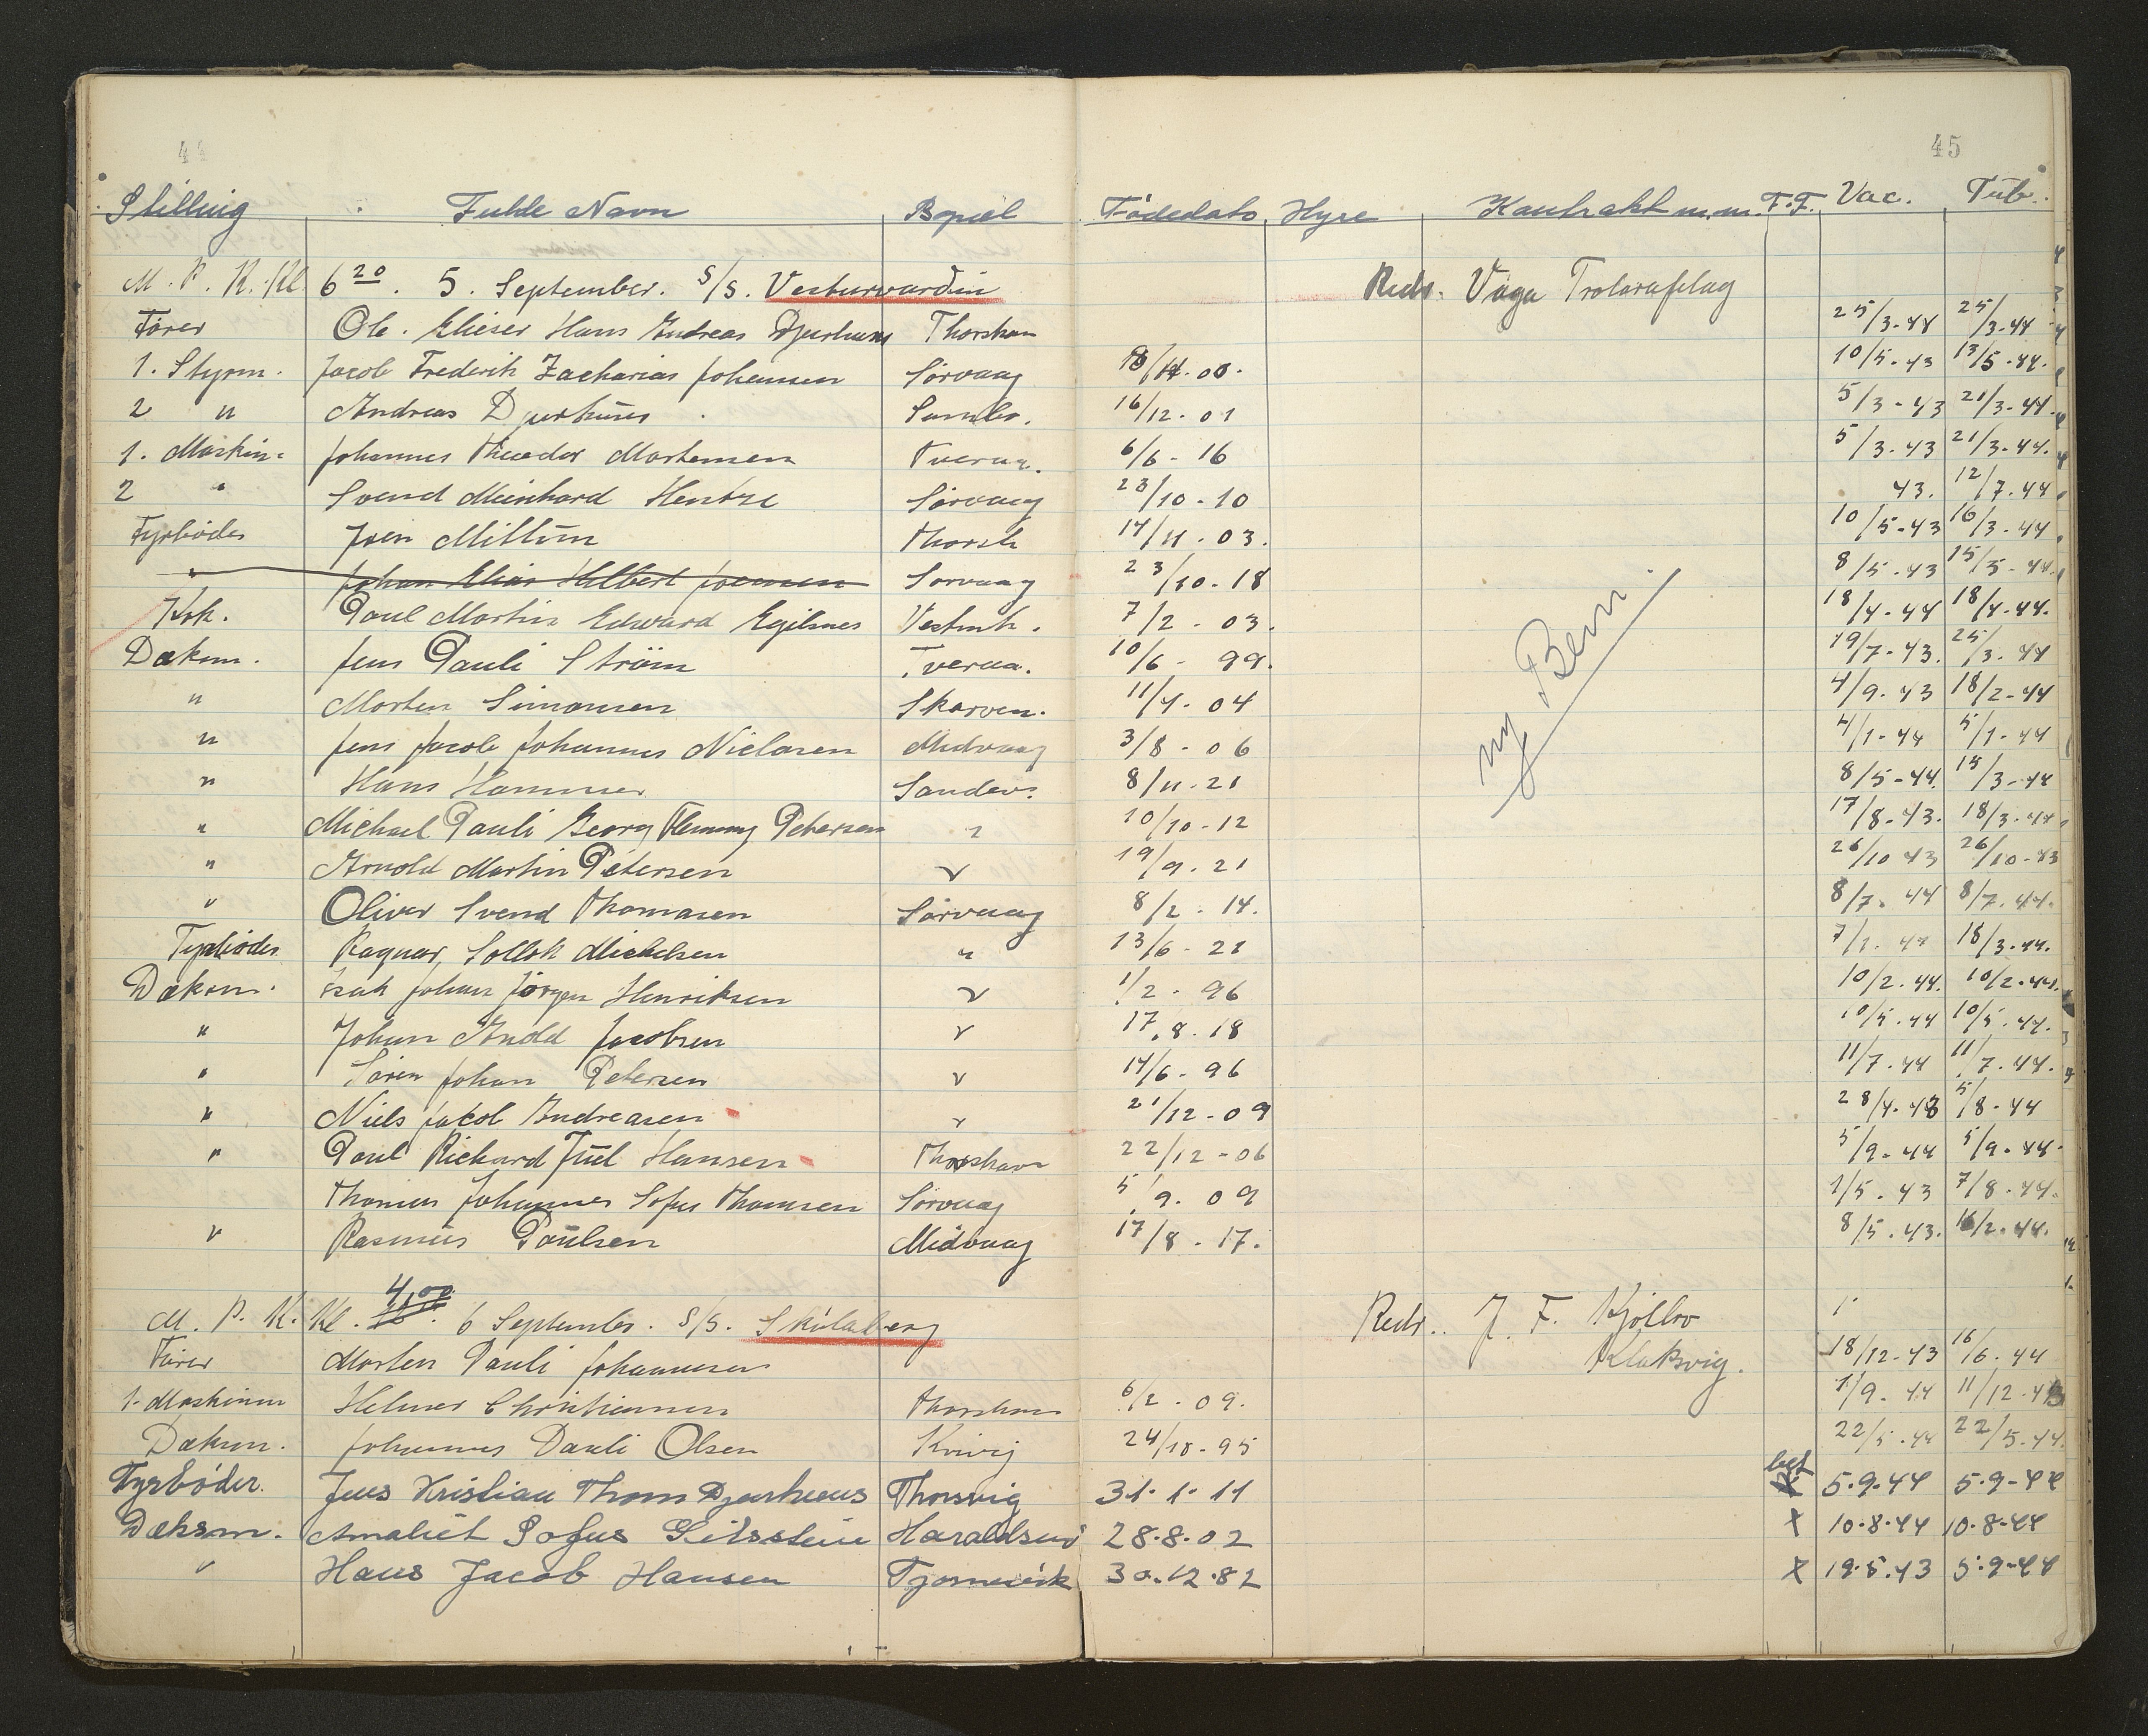 44 45
Stilling Fulde Navn Bopæl Fødedato Hyre Kontrakt m.m. T.F. Vac. Tub.
M. P. K. Kl. 6 20. 5. September. S/S. Vesturvardin Reds. Vága Trolarafelag
Fører Ole. Elieser Hans Andreas Djurhuus Thorshavn 25/3-44 25/3-44
1. Styrm. Jacob Frederik Zacharias Johansen Sörvaag 10/5-43 13/5-44.
2 " Andreas Djurhuus Sumbo. 16/12-01 5/3-43 21/3-44.
1. Maskin. Johannes Theodor Mortensen Tveraa. 6/6-16 5/3-43 21/3-44.
2 " Svend Meinhard Hentze Sörvaag 23/10-10 43. 12/7.44
Fyrböder Joen Mittún Thorsh 14/11-03. 10/5-43 16/3-44
" Johan Elias Hilbert Joensen Sorvaag 23/10-18 8/5-43 15/5-44.
Kok. Poul Martin Edward Egilsnes Vestmh. 7/2-03. 18/4-44 18/4-44.
Dæksm. Jens Pauli Ström Tveraa. 10/6-99. 19/7-43. 25/3.44
" Morten Simonsen Skarven. 11/4-04 4/9.43 18/2-44
" Jens Jacob Johannes Nielasen Midvaag 3/8-06 4/1-44 5/1-44
" Hans Hammer Sandav. 8/11-21 8/5-44. 15/3-44
" Michael Pauli Georg Flemmg Petersen " 10/10-12 17/8-43. 18/3-44
" Arnold Martin Petersen " 19/9.21 26/10 43 26/10-43
" Oliver Svend Thomasen Sörvaag 8/2-14. 8/7.44 8/7.44.
Fyrböder Ragnar, Sollok Mickelsen " 13/6-21 18/3.44.
Dæksm. Isak Johan Jörgen Henriksen " 1/2-96 10/2.44. 10/2.44.
" Johan Anold Jacobsen " 17.8.18 10/5.44 10/5.44.
" Sören Johan Petersen " 14/6-96 11/7.44 11/7.44.
" Niels Jakob Andreasen " 21/12-09 28/4.43 5/8-44
" Poul Richard Júel Hansen Thorshavn 22/12-06 5/9-44 5/9.44.
Thomas Johannes Sofus Thomsen Sörvaag 5/9.09 1/5.43 7/8.44.
" Rasmús Poúlsen Midvaag 17/8-17. 8/5.43. 16/2.44.
ny Bem.
M. P. K. Kl. 4,00. 6 September. S/S. Skálaberg Reds.. J. F. Kjölbro
Fører Morten Pauli Johannesen Klaksvig. 18/12-43 16/6.44
1. Maskinm Helmer Christiansen Thorshavn 6/2.09. 1/9.44 11/12-43
Dæksm. Johannes Pauli Olsen Kvivig 24/10-95 22/5.44 22/5.44.
Fyrböder. Jens Kristian Thom Djurhuus Thorsvig 31.1.11 bef X 5.9.44 5.9-44
Dæksm. Amaliel Sofus Gilsstein Haraldsund 28.8.02 X 10.8.44 10.8-44
" Hans Jacob Hansen Tjornuvik 30.12.82 X 19.5.43 5.9-44